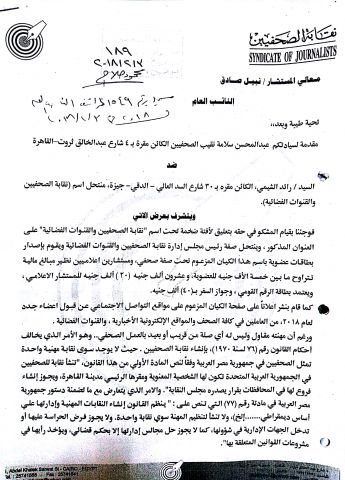 نقابة الصحفيين
SYNDICATE OF JOURNALISTS
١٨٩
معالي المستشار / نبيل صادق
النائب العام
تحية طيبة وبعد،،،
مقدمة لسيادتكم عبدالمحسن سلامة نقيب الصحفيين الكائن مقرة بـ ٤ شارع عبدالخالق ثروت-القاهرة
ضد
السيد / رائد الشيمي، الكائن مقره بـ ٣٠ شارع السد العالي - الدقي- جيزة، منتحل اسم (نقابة الصحفيين
والقنوات الفضائية).
ويتشرف بعرض الاتي
فوجئنا بقيام المشكو في حقه بتعليق لأفتة ضخمة تحت اسم "نقابة الصحفيين والقنوات الفضائية" على
العنوان المذكور، وينتحل صفة رئيس مجلس إدارة نقابة الصحفيين والقنوات الفضائية ويقوم بإصدار
بطاقات عضوية باسم هذا الكيان المزعوم تحت صفة صحفي، ومستشارين إعلاميين نظير مبالغ مالية
تتراوح ما بين خمسة الأف جنيه للعضوية، وعشرون ألف جنيه (٢٠) ألف جنيه للمستشار الاعلامي،
ويعتمد بطاقة الرقم القومي، وجواز السفر بـ(٤٠) ألف جنيه.
كما قام بنشر اعلاناً على صفحة الكيان المزعوم على مواقع التواصل الاجتماعي عن قبول أعضاء جدد
لعام ٢٠١٨، من العاملين في كافة الصحف والمواقع الإلكترونية الأخبارية، والقنوات الفضائية.
ورغم أن مهنته مقاول وليس له أي صلة من قريب أو بعيد بالعمل الصحفي.. وهو الأمر الذي يخالف
أحكام القانون رقم (٧٦ لسنة ١٩٧٠)، بإنشاء نقابة الصحفيين، حيث لا يوجد سوى نقابة مهنية واحدة
تمثل الصحفيين في جمهورية مصر العربية وفقاً لنص المادة الأولى من هذا القانون، "تنشأ نقابة للصحفيين
في الجمهورية العربية المتحدة تكون لها الشخصية المعنوية ومقرها الرئيسي مدينة القاهرة، ويجوز إنشاء
فروع لها في المحافظات بقرار يصدره مجلس النقابة". والامر الذي يتعارض مع ما تضمنة دستور جمهورية
مصر العربية في مادتة رقم (٧٧) التي تنص على: " ينظم القانون إنشاء النقابات المهنية وإدارتها على
أساس ديمقراطي....(إلخ)، ولا تنشأ لتنظيم المهنة سوى نقابة واحدة. ولا يجوز فرض الحراسة عليها أو
تدخل الجهات الإدارية في شؤنها، كما لا يجوز حل مجالس إدارتها إلا بحكم قضائي، ويؤخذ رأيها في
مشروعات القوانين المتعلقة بها".